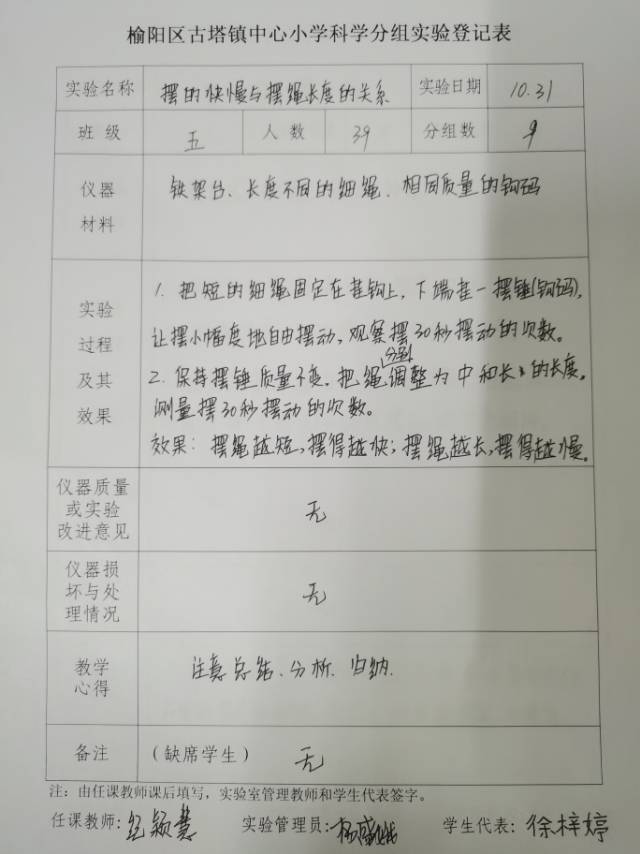 榆阳区古塔镇中心小学科学分组实验登记表
实验名称 摆的快慢与摆绳长度的关系 实验日期 10.31
班级 五 人数 39 分组数 9
仪器材料 铁架台、长度不同的细绳、相同质量的钩码
实验过程及其效果
1. 把短的细绳固定在挂钩上，下端挂一摆锤(钩码)，
让摆小幅度地自由摆动，观察摆30秒摆动的次数。
2. 保持摆锤质量不变，把绳分别调整为中和长的长度，
测量摆30秒摆动的次数。
效果：摆绳越短，摆得越快；摆绳越长，摆得越慢。
仪器质量或实验改进意见 无
仪器损坏与处理情况 无
教学心得 注意总结、分析、归纳.
备注 （缺席学生） 无
注：由任课教师课后填写，实验室管理教师和学生代表签字。
任课教师：颖慧 实验管理员：杨盛 学生代表：徐梓婷